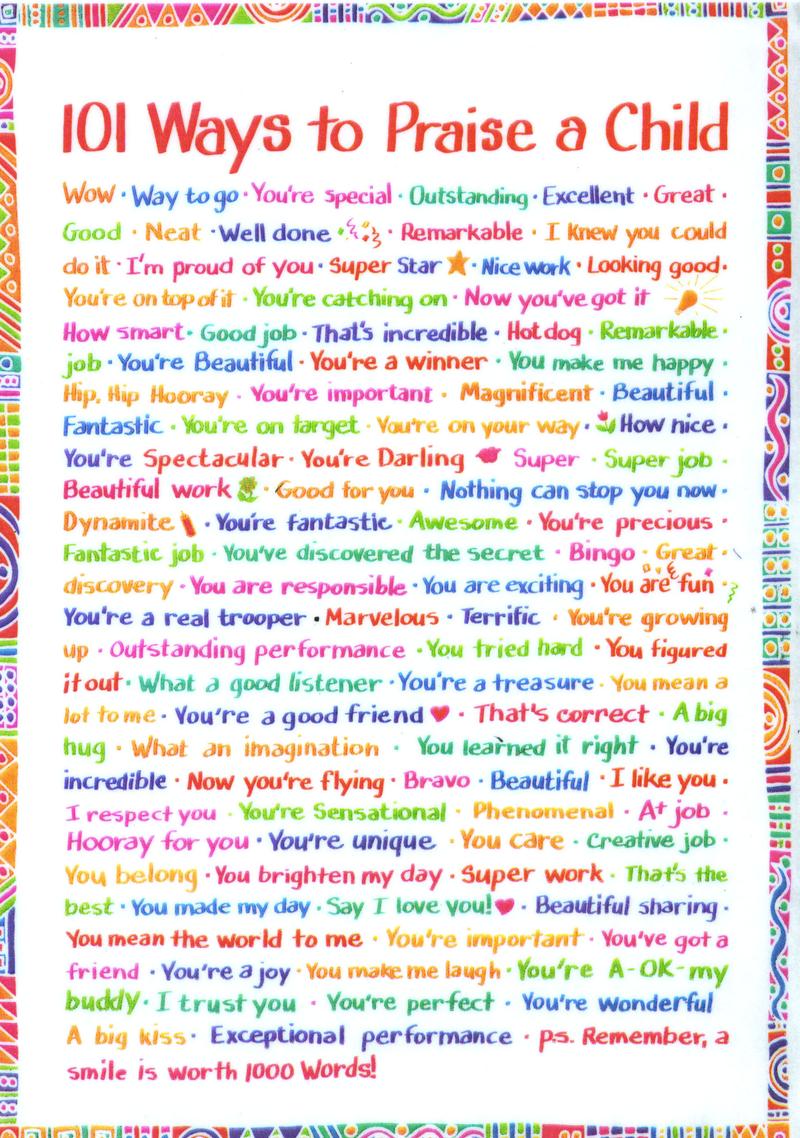 101 Ways to Praise a Child
Wow · Way to go · You're special · Outstanding · Excellent · Great ·
Good · Neat · Well done · Remarkable · I knew you could
do it · I'm proud of you · Super Star · Nice work · Looking good ·
You're on top of it · You're catching on · Now you've got it
How smart · Good job · That's incredible · Hot dog · Remarkable ·
job · You're Beautiful · You're a winner · You make me happy ·
Hip, Hip Hooray · You're important · Magnificent · Beautiful ·
Fantastic · You're on target · You're on your way · How nice ·
You're Spectacular · You're Darling Super · Super job ·
Beautiful work · Good for you · Nothing can stop you now ·
Dynamite · You're fantastic · Awesome · You're precious ·
Fantastic job · You've discovered the secret · Bingo · Great ·
discovery · You are responsible · You are exciting · You are fun ·
You're a real trooper · Marvelous · Terrific · You're growing
up · Outstanding performance · You tried hard · You figured
it out · What a good listener · You're a treasure · You mean a
lot to me · You're a good friend · That's correct · A big
hug · What an imagination · You learned it right · You're
incredible · Now you're flying · Bravo · Beautiful · I like you ·
I respect you · You're Sensational · Phenomenal · A+ job ·
Hooray for you · You're unique · You care · Creative job ·
You belong · You brighten my day · Super work · That's the
best · You made my day · Say I love you! · Beautiful sharing ·
You mean the world to me · You're important · You've got a
friend · You're a joy · You make me laugh · You're A-OK-my
buddy · I trust you · You're perfect · You're wonderful
A big kiss · Exceptional performance · p.s. Remember, a
smile is worth 1000 Words!